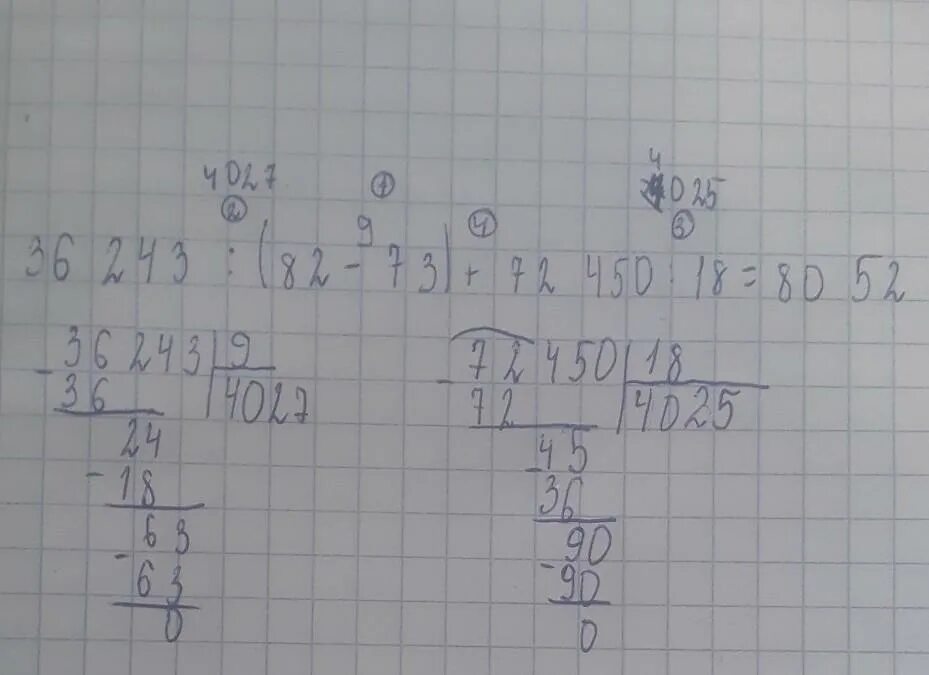 4027 ① 4025
② 9 ④ ③
36 243 : (82 - 73) + 72 450 : 18 = 80 52
- 36 243 | 9
36 | 4027
24
- 18
63
- 63
0
- 72 450 | 18
72 | 4025
- 45
36
90
- 90
0